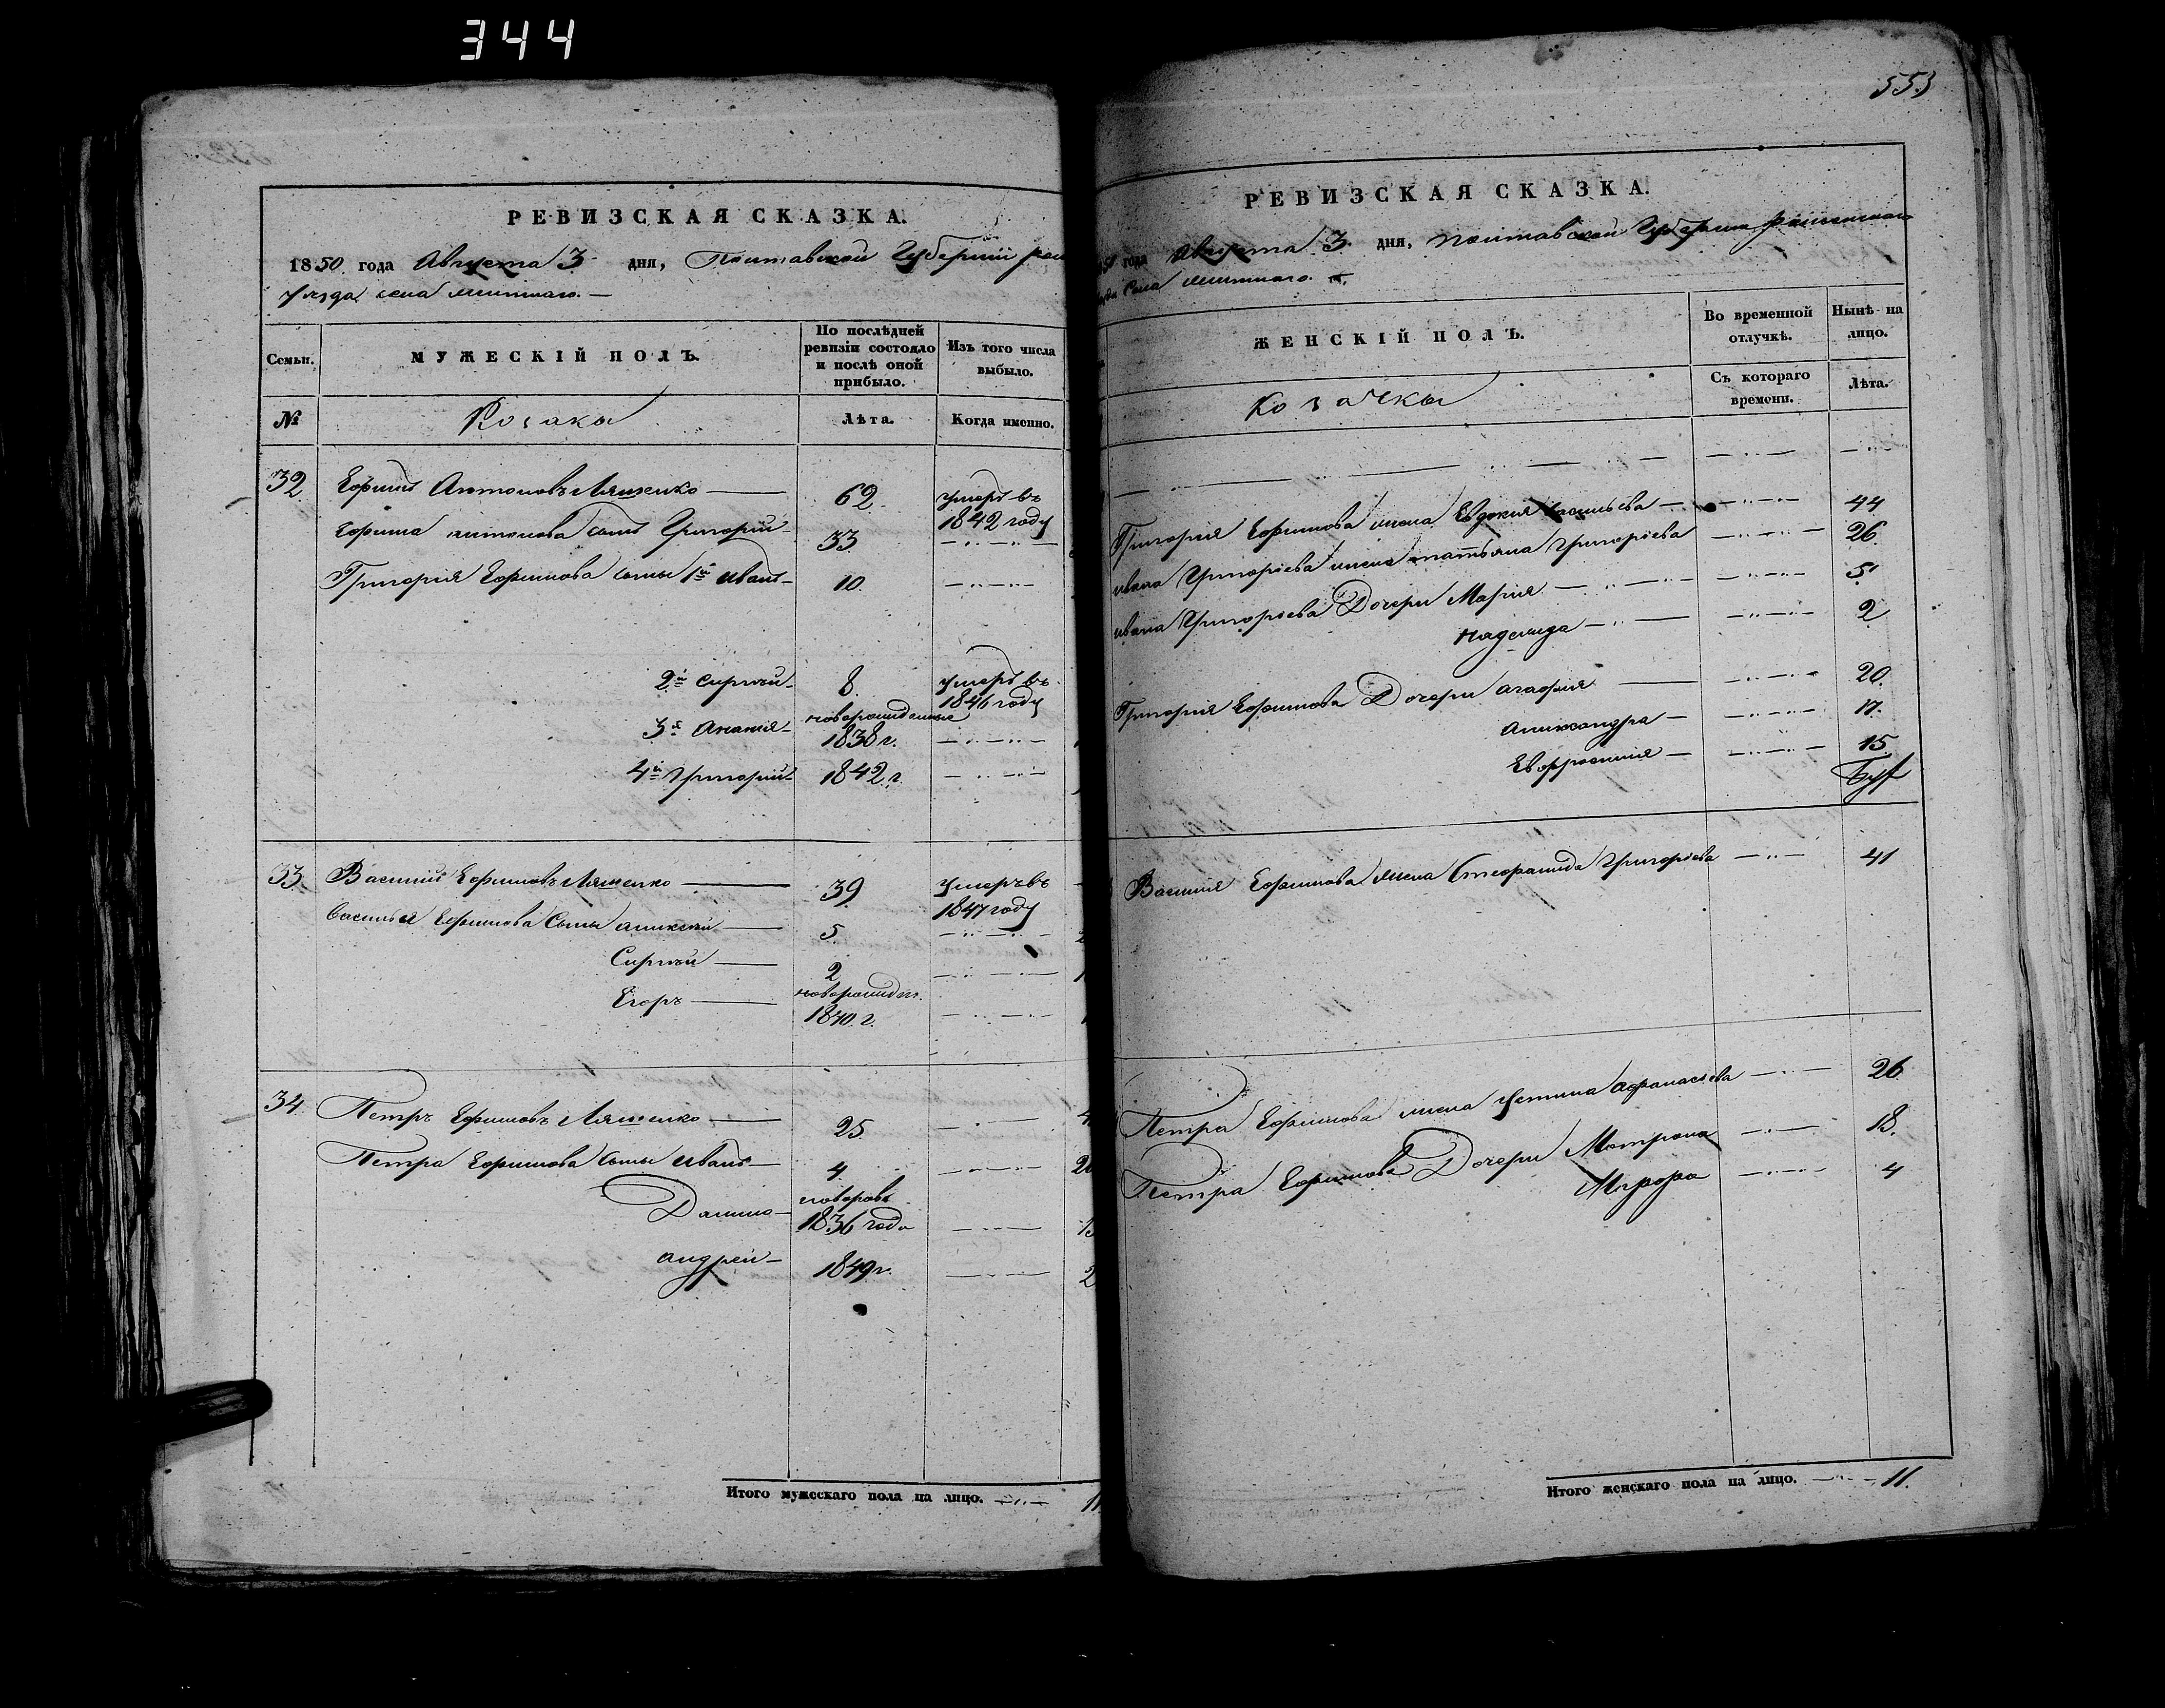 344
РЕВИЗСКАЯ СКАЗКА.
1850 года Августа 3 дня, Полтавской Губернiи
Уезда села
Семьи.
МУЖЕСКІЙ ПОЛЪ.
По послѣдней ревизіи состояло и послѣ оной прибыло.
Изъ того числа выбыло.
№
Козаки
Лѣта.
Когда именно.
32 Ефимъ Антоновъ Ляшенко 62. умеръ въ 1842 году
Ефима антонова сынъ Григорий 33
Григорія Ефимова сыны 1й иванъ 10.
2й сергѣй 8. умеръ въ 1846 году
3й Ананiя новорожденные 1838 г.
4й григорий 1842 г.
33. Василий Ефимовъ Ляшенко 39 умеръ въ 1847 году
василья Ефимова Сыны аликсѣй 5.
Сиргѣй 2
Егоръ новорожден. 1840. г.
34. Петръ Ефимовъ Ляшенко 25.
Петра Ефимова сыны иванъ 4
Данило новорож 1836 года
андрей 1849 г.
Итого мужескаго пола на лицо. 11
553
РЕВИЗСКАЯ СКАЗКА.
года Августа 3 дня, полтавской Губернiи
Села
ЖЕНСКІЙ ПОЛЪ.
Во временной отлучкѣ.
Нынѣ на лицо.
Козачки
Съ котораго времени.
Лѣта.
Григорія Ефимова жена Евдокия васильева 44
ивана Григорьева жена татьяна григорьева 26
ивана Григорьева Дочери Мария 5
надежда 2
Григорія Ефимова Дочери агафия 20.
аликсандра 17.
Евфросиния 15
Василия Ефимова жена Стефанида григорьева 41
Петра Ефимова жена устина афанасьева 26
Петра Ефимова Дочери Мотрона 18.
4
Итого женскаго пола на лицо. 11.